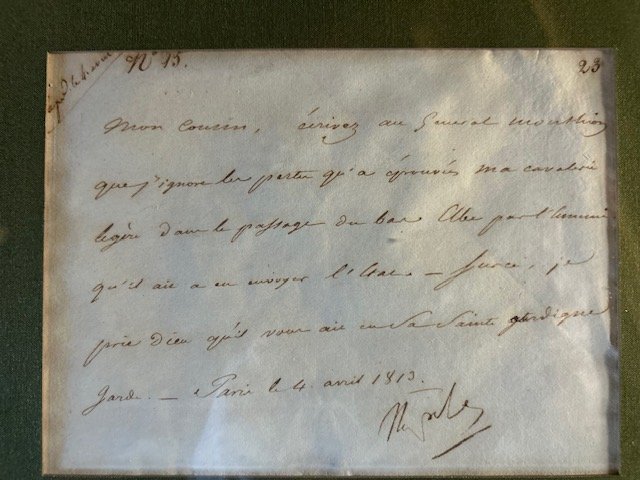 N° 15.
23
Mon Cousin, écrivez au General Monthion
que j'ignore les pertes qu'a éprouvées ma cavalerie
legère dans le passage du bas Elbe par l'ennemi
qu'il ait a en envoyer l'Etat _ Sur ce, je
prie Dieu qu'il vous ait en Sa Sainte et digne
Garde. _ Paris le 4 avril 1813.